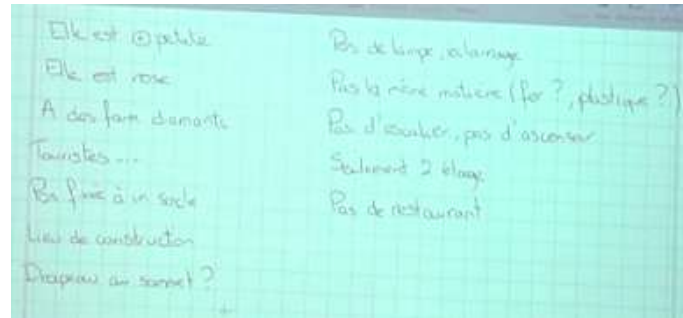 Elle est ⊕ petite
Elle est rose
A des faux diamants
Touristes ...
Pas fixée à un socle
Lieu de construction
Drapeau au sommet ?
Pas de lampe, éclairage
Pas la même matière (fer ?, plastique ?)
Pas d'escalier, pas d'ascenseur
Seulement 2 étages
Pas de restaurant